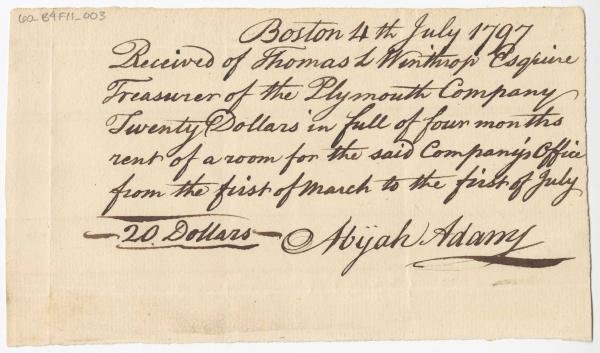 60_B4F11_003
Boston 4th July 1797
Received of Thomas L Winthrop Esquire
Treasurer of the Plymouth Company
Twenty Dollars in full of four months
rent of a room for the said Company's Office
from the first of March to the first of July
20. Dollars
Abijah Adams